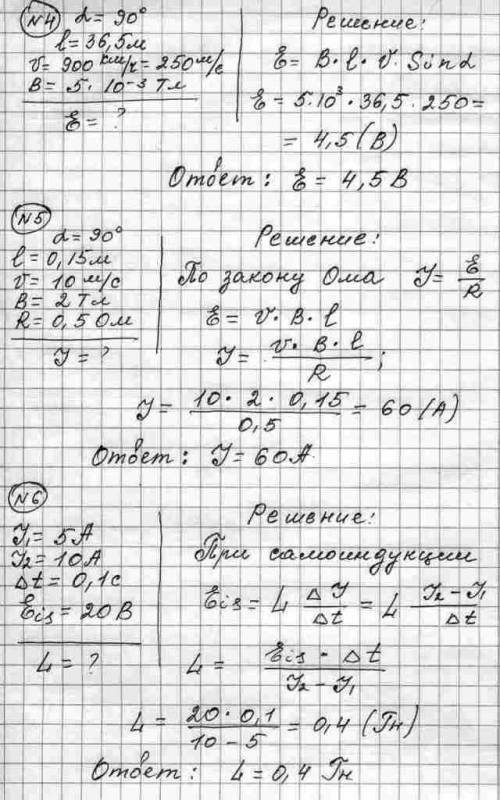 №4 α = 90°
l = 36,5м
v = 900 км/ч = 250 м/с
B = 5 · 10⁻³ Тл
Ɛ = ?
Решение:
Ɛ = B · l · v · Sin α
Ɛ = 5·10³ · 36,5 · 250 =
= 4,5 (В)
Ответ: Ɛ = 4,5 В
№5
α = 90°
l = 0,15м
v = 10 м/с
B = 2 Тл
R = 0,5 Ом
J = ?
Решение:
По закону Ома J = Ɛ/R
Ɛ = v · B · l
J = v · B · l / R ;
J = 10 · 2 · 0,15 / 0,5 = 60 (А)
Ответ: J = 60А
№6
J₁ = 5А
J₂ = 10А
Δt = 0,1с
Ɛis = 20 В
L = ?
Решение:
При самоиндукции
Ɛis = L ΔJ/Δt = L J₂ - J₁ / Δt
L = Ɛis · Δt / J₂ - J₁
L = 20 · 0,1 / 10 - 5 = 0,4 (Гн)
Ответ: L = 0,4 Гн